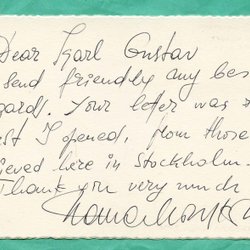 Dear Karl Gustav
send friendly my bes
gards. Your letter was
st I opened, from those
ieved here in Stockholm.
Thank you very much